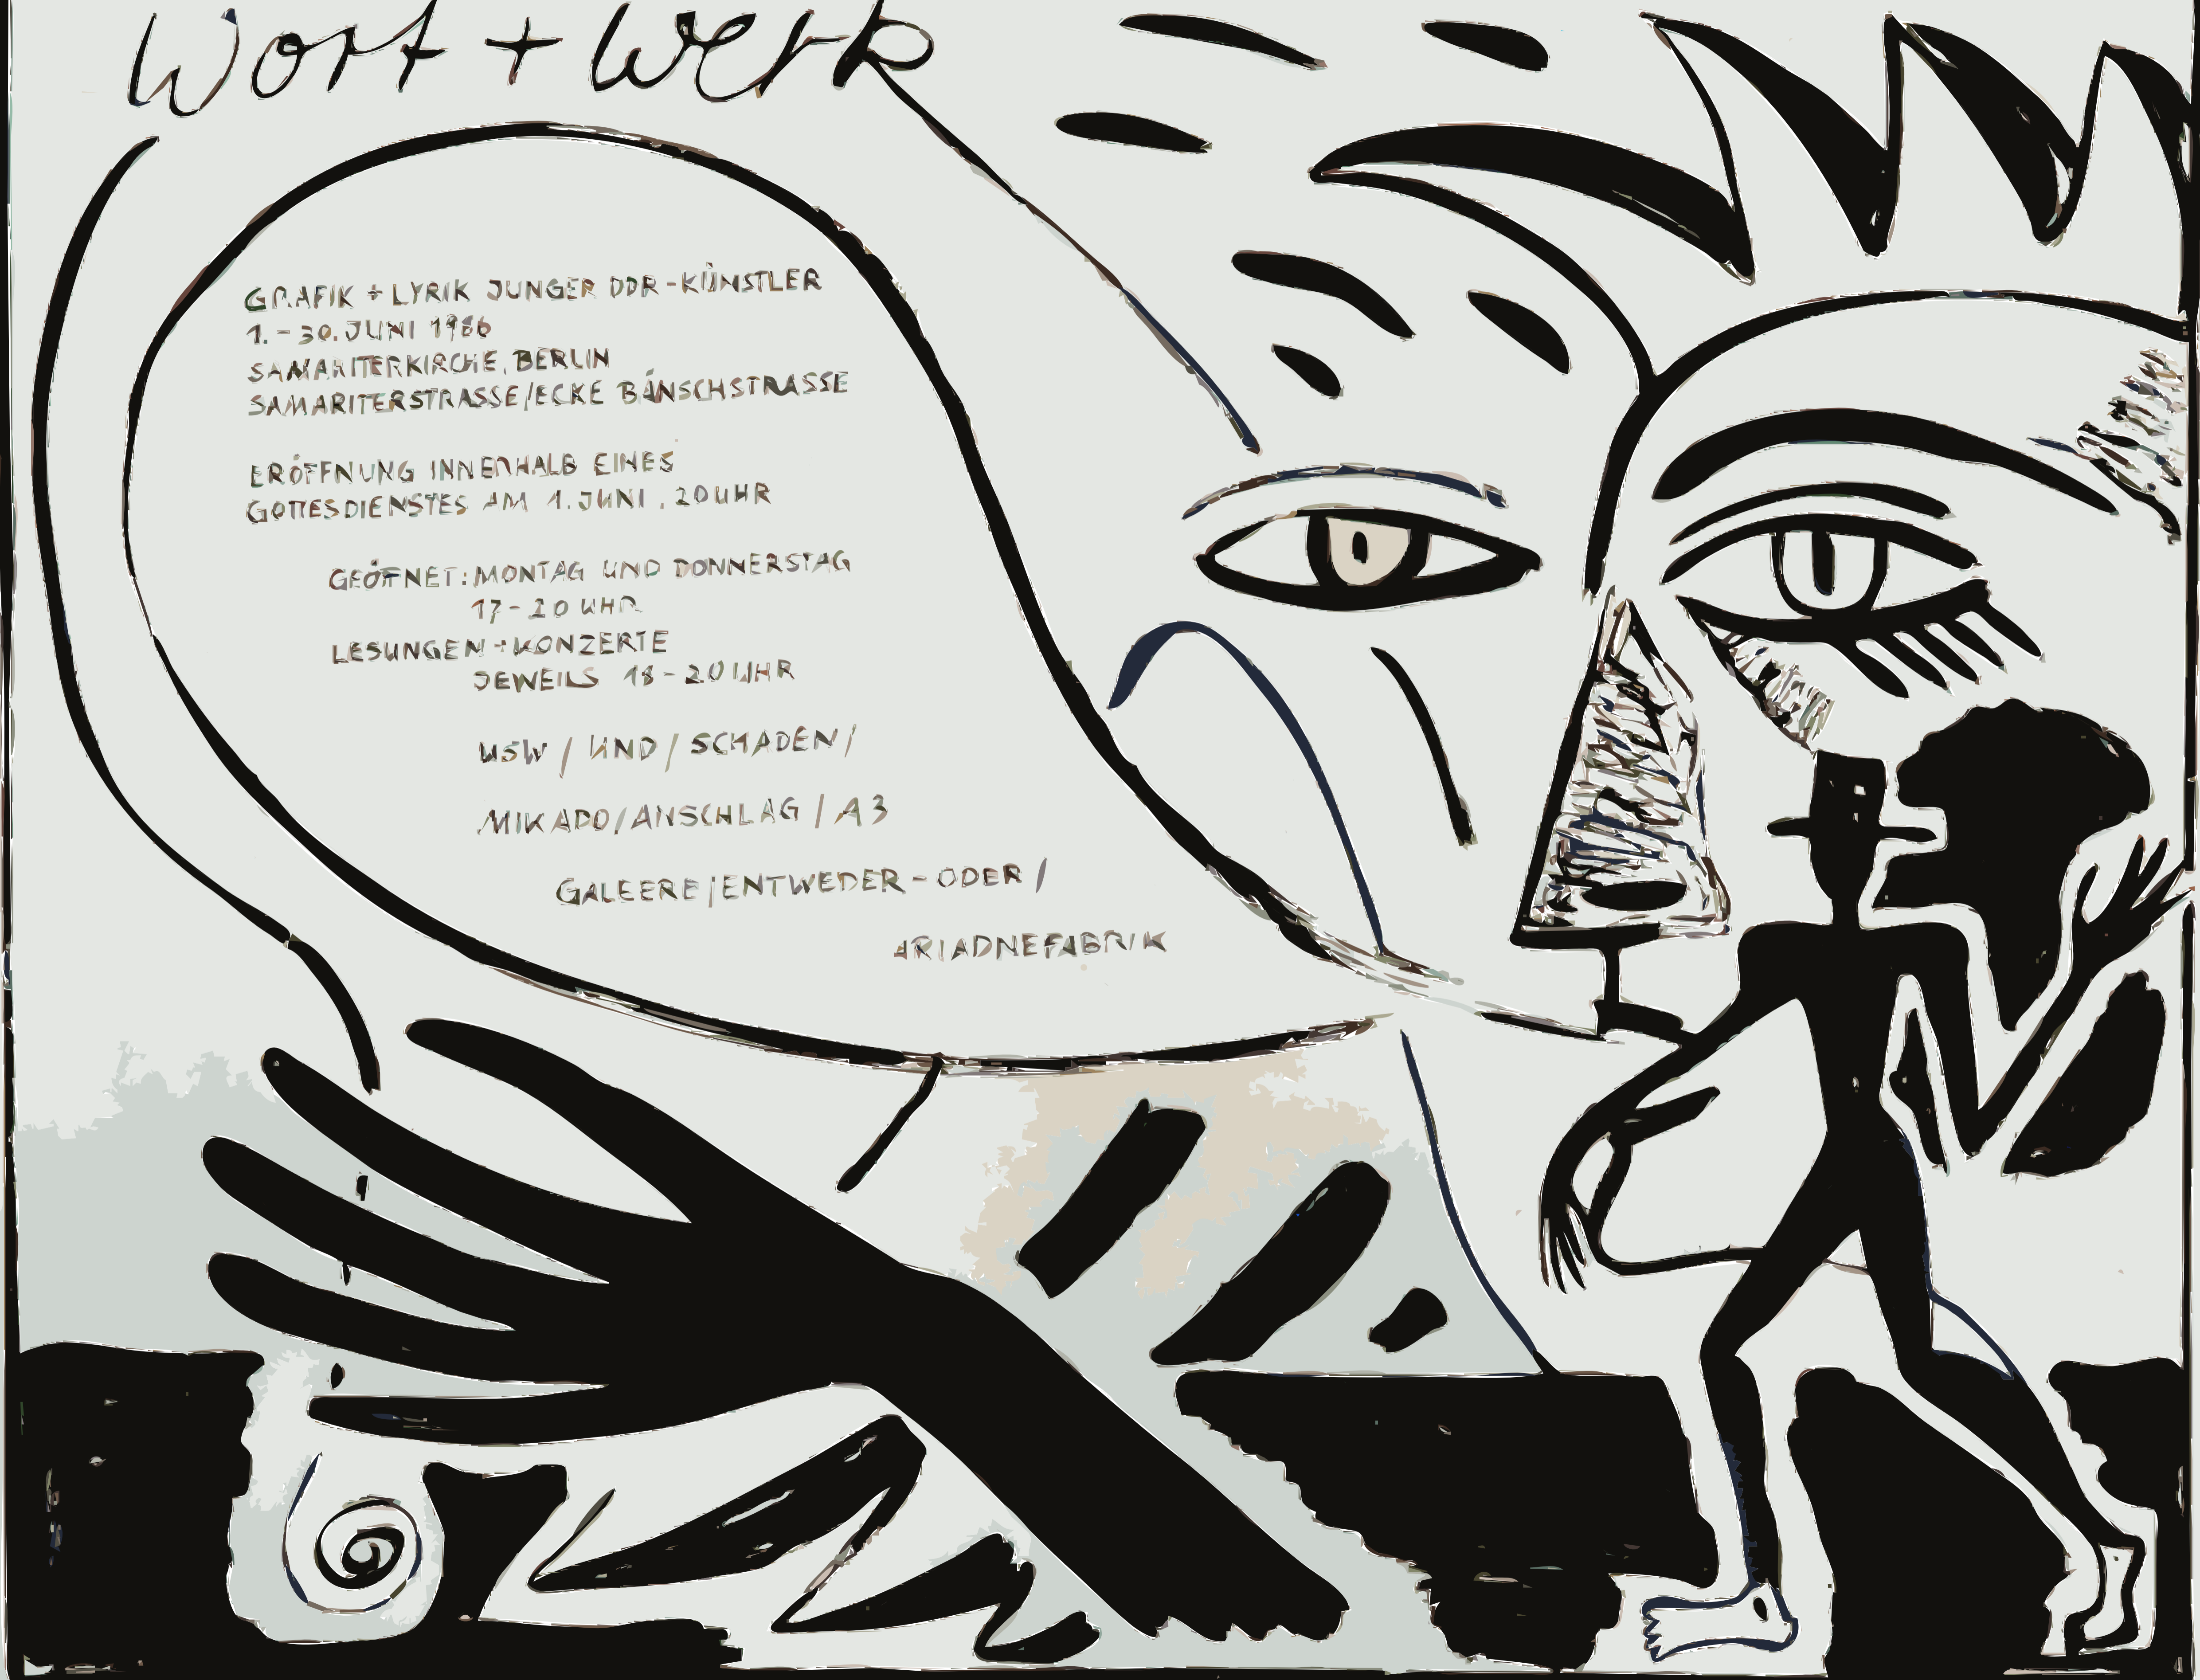 Wort + Werk
GRAFIK + LYRIK JUNGER DDR-KÜNSTLER
1.-30. JUNI 1986
SAMARITERKIRCHE, BERLIN
SAMARITERSTRASSE/ECKE BÄNSCHSTRASSE
ERÖFFNUNG INNERHALB EINES
GOTTESDIENSTES AM 1. JUNI, 20 UHR
GEÖFNET: MONTAG UND DONNERSTAG
17-20 UHR
LESUNGEN + KONZERTE
JEWEILS 18-20 UHR
USW / UND / SCHADEN /
MIKADO / ANSCHLAG / A3
GALEERE / ENTWEDER-ODER /
ARIADNEFABRIK